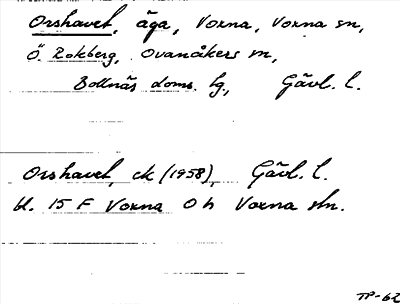 Orshavet, äga, Voxna, Voxna sn,
Ö. Rokberg, Ovanåkers sn,
Bollnäs doms. lg, Gävl. l.
Orshavet, ek (1958), Gävl. l.
bl. 15 F Voxna O h Voxna sn.
TP-62